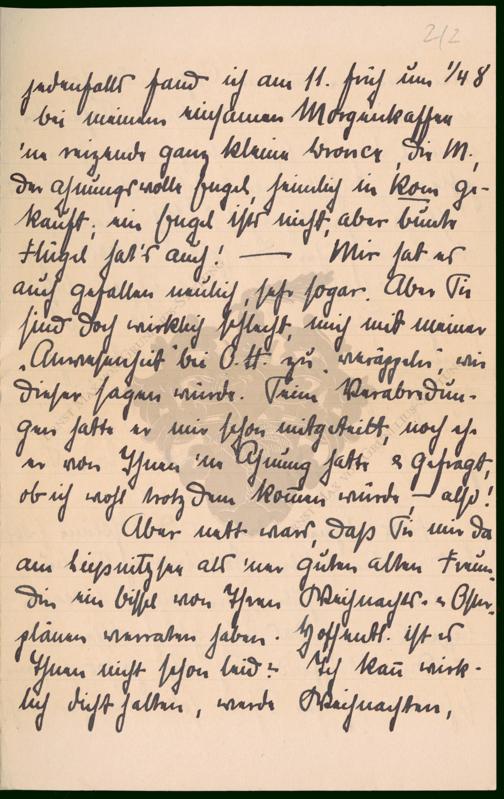 2/2
jedenfalls fand ich am 11. früh um 1/4 8
bei meinem einsamen Morgenkaffee
'ne reizende ganz kleine Bronce, die M.,
der ahnungsvolle Engel, heimlich in Rom ge-
kauft; ein Engel ists nicht, aber bunte
Flügel hat's auch! — Mir hat es
auch gefallen neulich, sehr sogar. Aber Sie
sind doch wirklich schlecht, mich mit meiner
„Anwesenheit" bei O. H. zu „veräppeln", wie
dieser sagen würde. Seine Verabredun-
gen hatte er mir schon mitgeteilt, noch ehe
er von Ihnen 'ne Ahnung hatte & gefragt,
ob ich wohl trotzdem kommen würde, — also!
Aber nett wars, daß Sie mir da
am Liepnitzsee als 'ner guten alten Freun-
din ein bissel von Ihren Weihnachts- & Oster-
plänen verraten haben. Hoffentl. ist es
Ihnen nicht schon leid? Ich kann wirk-
lich dicht halten, werde Weihnachten,